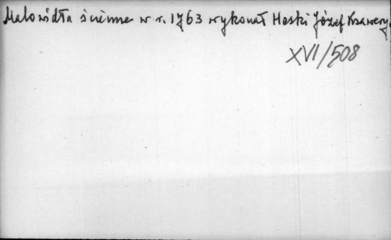 Malowidła ścienne w r. 1763 wykonał Haski Józef Ksawery.
XVI/508